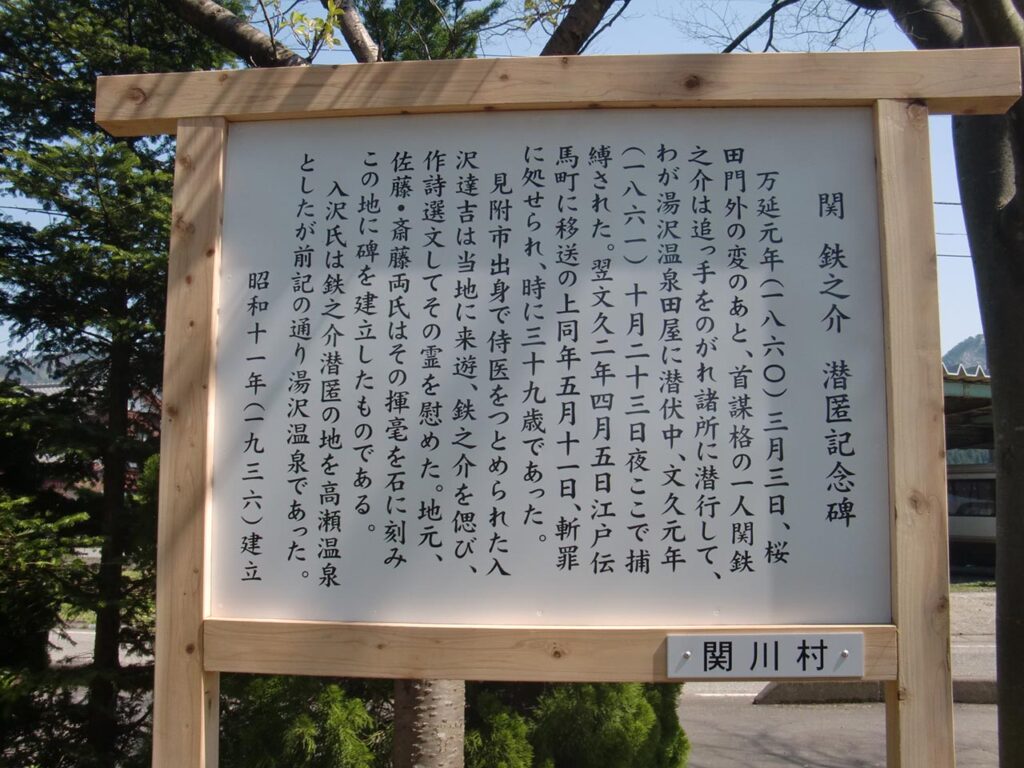 関 鉄之介 潜匿記念碑
万延元年(一八六〇)三月三日、桜
田門外の変のあと、首謀格の一人関鉄
之介は追っ手をのがれ諸所に潜行して、
わが湯沢温泉田屋に潜伏中、文久元年
(一八六一)十月二十三日夜ここで捕
縛された。翌文久二年四月五日江戸伝
馬町に移送の上同年五月十一日、斬罪
に処せられ、時に三十九歳であった。
見附市出身で侍医をつとめられた入
沢達吉は当地に来遊、鉄之介を偲び、
作詩選文してその霊を慰めた。地元、
佐藤・斎藤両氏はその揮毫を石に刻み
この地に碑を建立したものである。
入沢氏は鉄之介潜匿の地を高瀬温泉
としたが前記の通り湯沢温泉であった。
昭和十一年(一九三六)建立
関川村